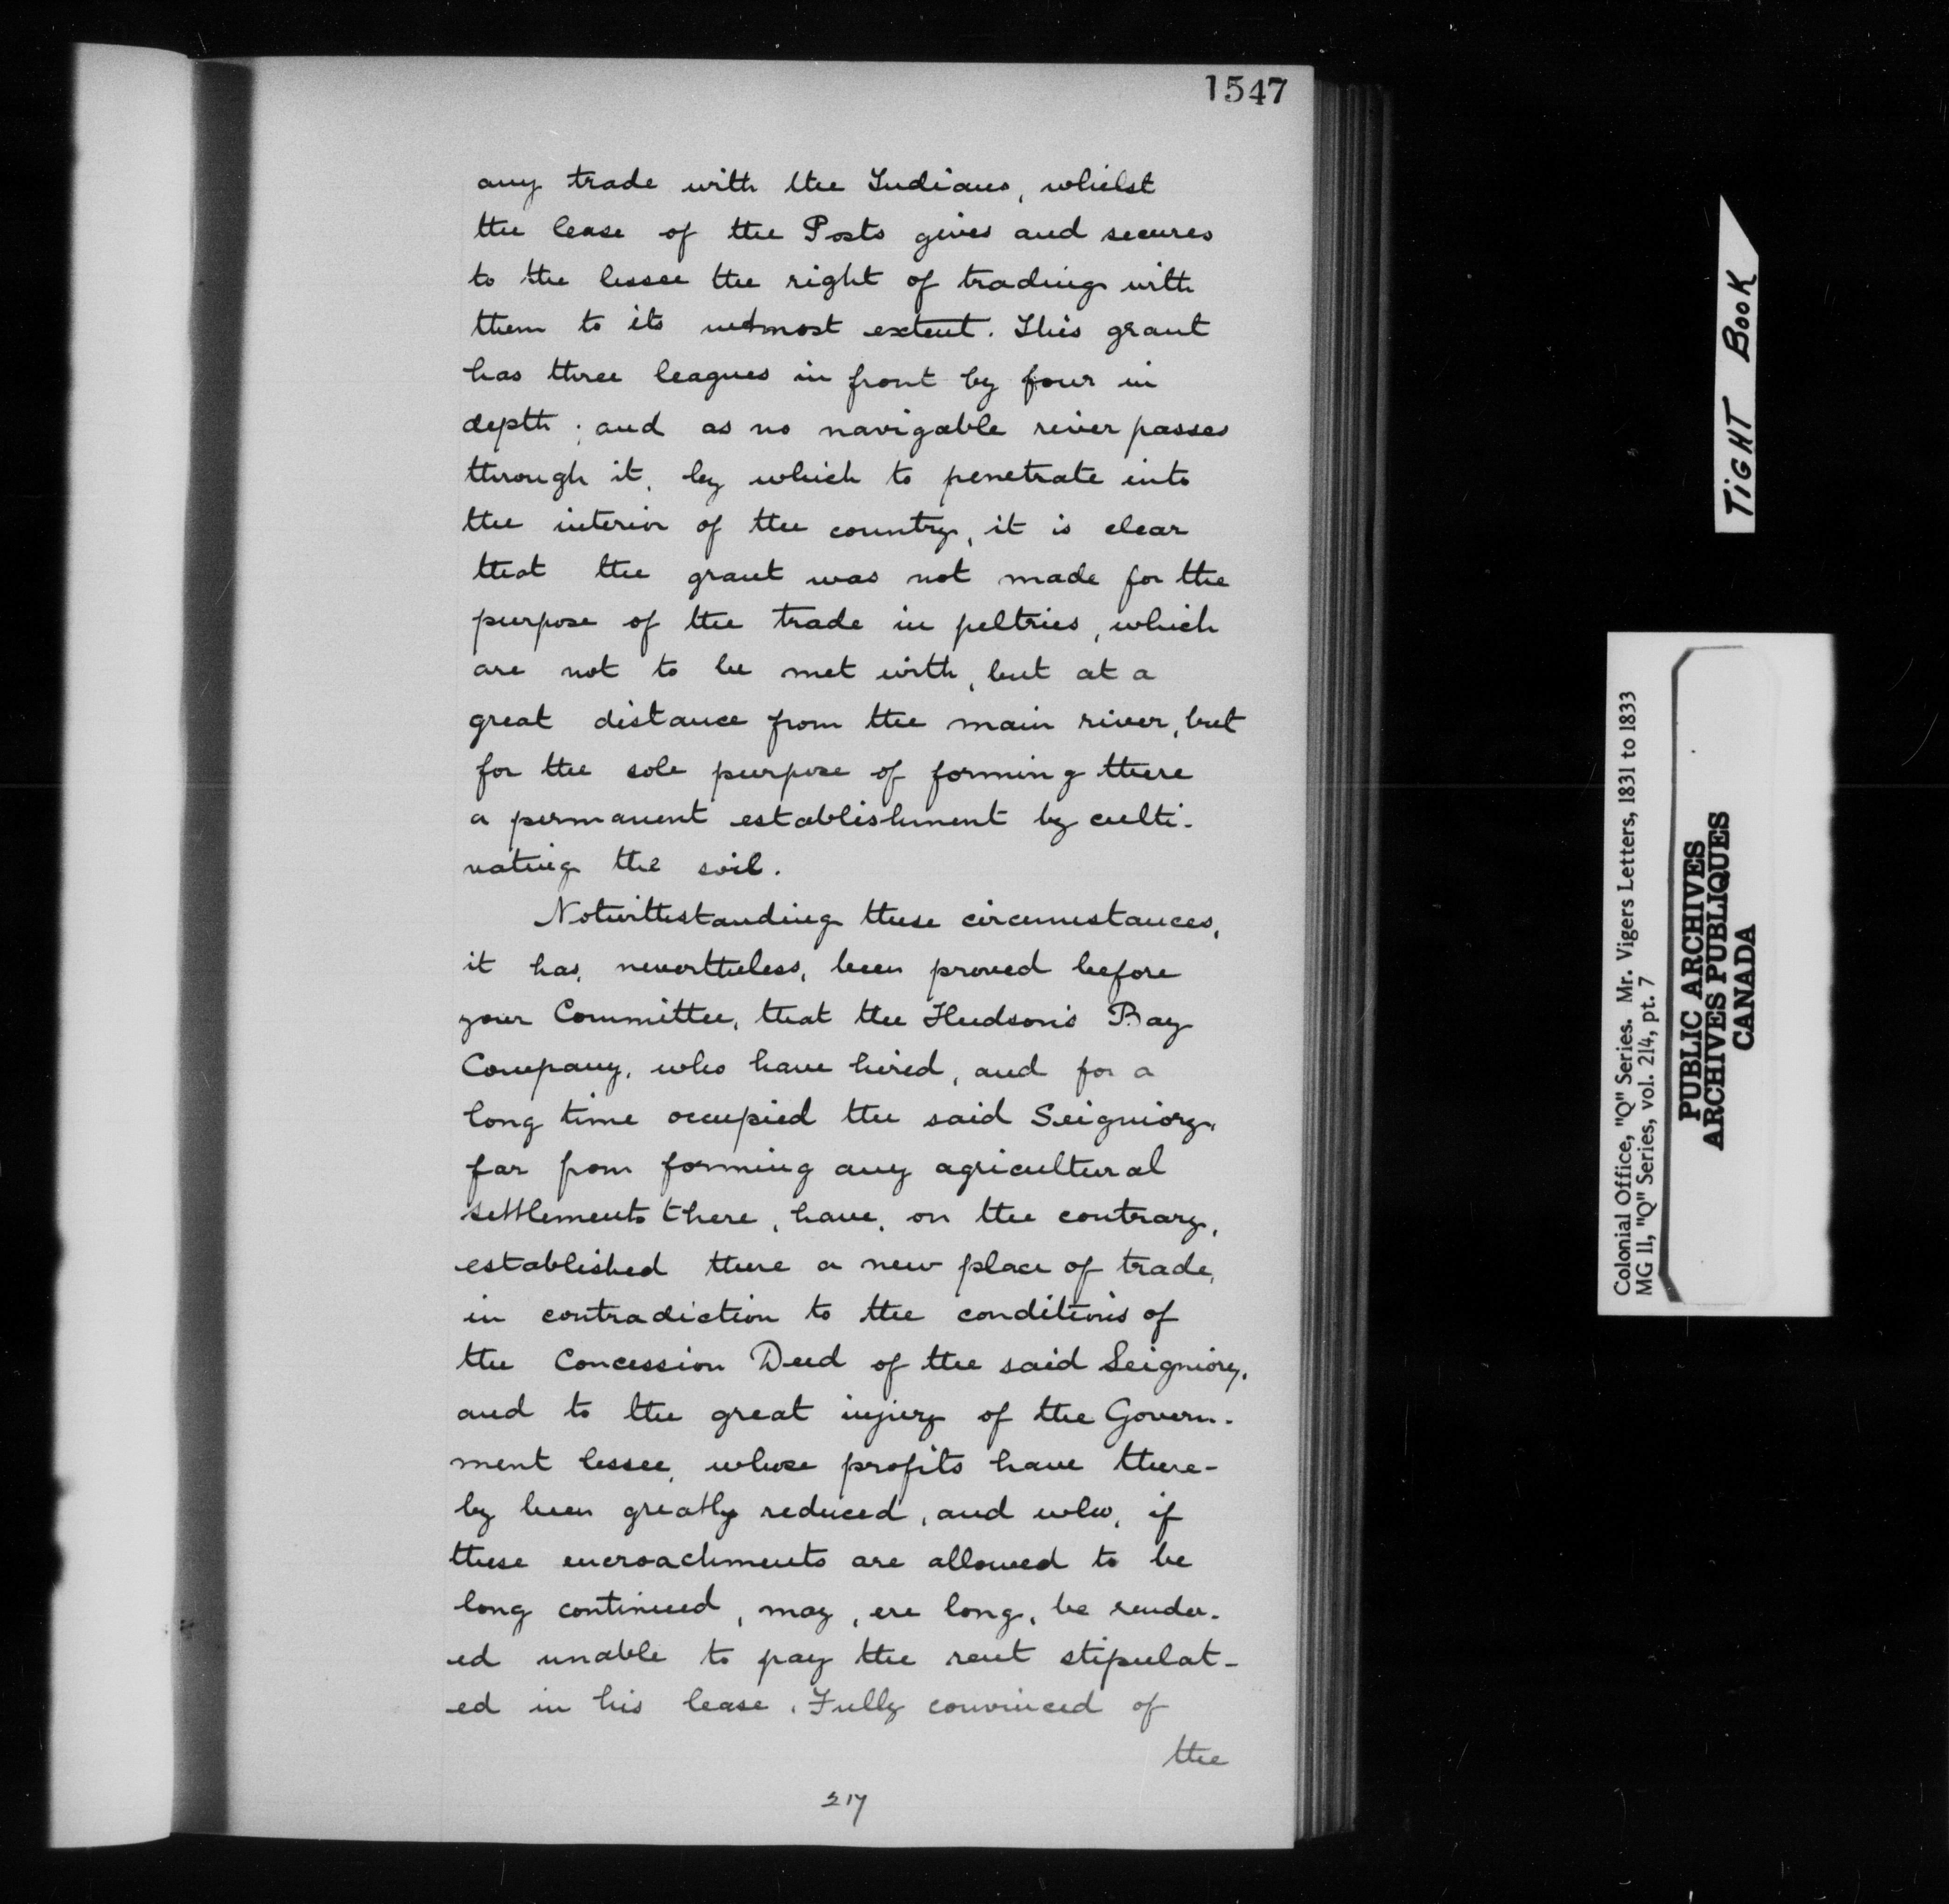 1547
any trade with the Indians, whilst
the lease of the Posts gives and secures
to the lessee the right of trading with
them to its utmost extent. This grant
has three leagues in front by four in
depth; and as no navigable river passes
through it, by which to penetrate into
the interior of the country, it is clear
that the grant was not made for the
purpose of the trade in peltries, which
are not to be met with, but at a
great distance from the main river, but
for the sole purpose of forming there
a permanent establishment by culti-
vating the soil.
Notwithstanding these circumstances,
it has, nevertheless, been proved before
your Committee, that the Hudson's Bay
Company, who have hired, and for a
long time occupied the said Seigniory,
far from forming any agricultural
settlements there, have, on the contrary,
established there a new place of trade,
in contradiction to the conditions of
the Concession Deed of the said Seigniory,
and to the great injury of the Govern-
ment lessee, whose profits have there-
by been greatly reduced, and who, if
these encroachments are allowed to be
long continued, may, ere long, be render-
ed unable to pay the rent stipulat-
ed in his lease. Fully convinced of
the
217
TIGHT BOOK
Colonial Office, "Q" Series. Mr. Vigers Letters, 1831 to 1833
MG 11, "Q" Series, vol. 214, pt. 7
PUBLIC ARCHIVES
ARCHIVES PUBLIQUES
CANADA